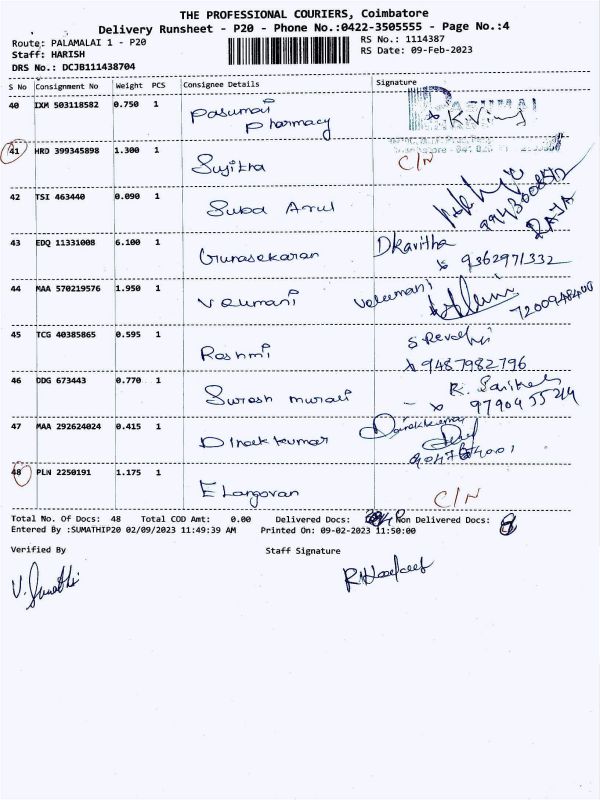 THE PROFESSIONAL COURIERS, Coimbatore
Delivery Runsheet - P20 - Phone No.:0422-3505555 - Page No.:4
Route: PALAMALAI 1 - P20 RS No.: 1114387
Staff: HARISH RS Date: 09-Feb-2023
DRS No.: DCJB111438704
S No Consignment No Weight PCS Consignee Details Signature
40 IXM 503118582 0.750 1 Pasumai Pharmacy
41 HRD 399345898 1.300 1 Sujitha C/N
42 TSI 463440 0.090 1 Suba Arul RAJA
43 EDQ 11331008 6.100 1 Gunasekaran DKavitha
9362971332
44 MAA 570219576 1.950 1 Velumani Velumani
7200948400
45 TCG 40385865 0.595 1 Roshmi S Revathi
9487982796
46 DDG 673443 0.770 1 Suresh murali
47 MAA 292624024 0.415 1
48 PLN 2250191 1.175 1 Elangovan C/N
Total No. Of Docs: 48 Total COD Amt: 0.00 Delivered Docs: Non Delivered Docs: 8
Entered By :SUMATHIP20 02/09/2023 11:49:39 AM Printed On: 09-02-2023 11:50:00
Verified By Staff Signature
V. Sumathi